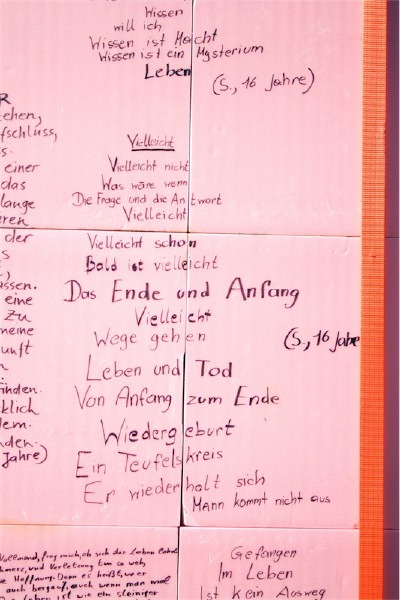 Wissen
will ich
Wissen ist Macht
Wissen ist ein Mysterium
Leben
(S., 16 Jahre)
R
ehen,
fschluss,
s.
einer
das
lange
eren
der
s
,
ssen.
eine
zu
meine
unft
n
inden.
klich
dem.
nden.
Jahre)
Vielleicht
Vielleicht nicht
Was wäre wenn
Die Frage und die Antwort
Vielleicht
Vielleicht schon
Bald ist vielleicht
Das Ende und Anfang
Vielleicht
Wege gehen
(S., 16 Jahre
Leben und Tod
Von Anfang zum Ende
Wiedergeburt
Ein Teufelskreis
Er wiederholt sich
Mann kommt nicht aus
Vollmond, frag mich, ob sich das Leben
und Verletzung tun so weh,
Hoffnung. Denn es heißt,
auch bergauf, auch wenn man mal
Leben ist wie ein steiniger
Gefangen
Im Leben
Ist kein Ausweg